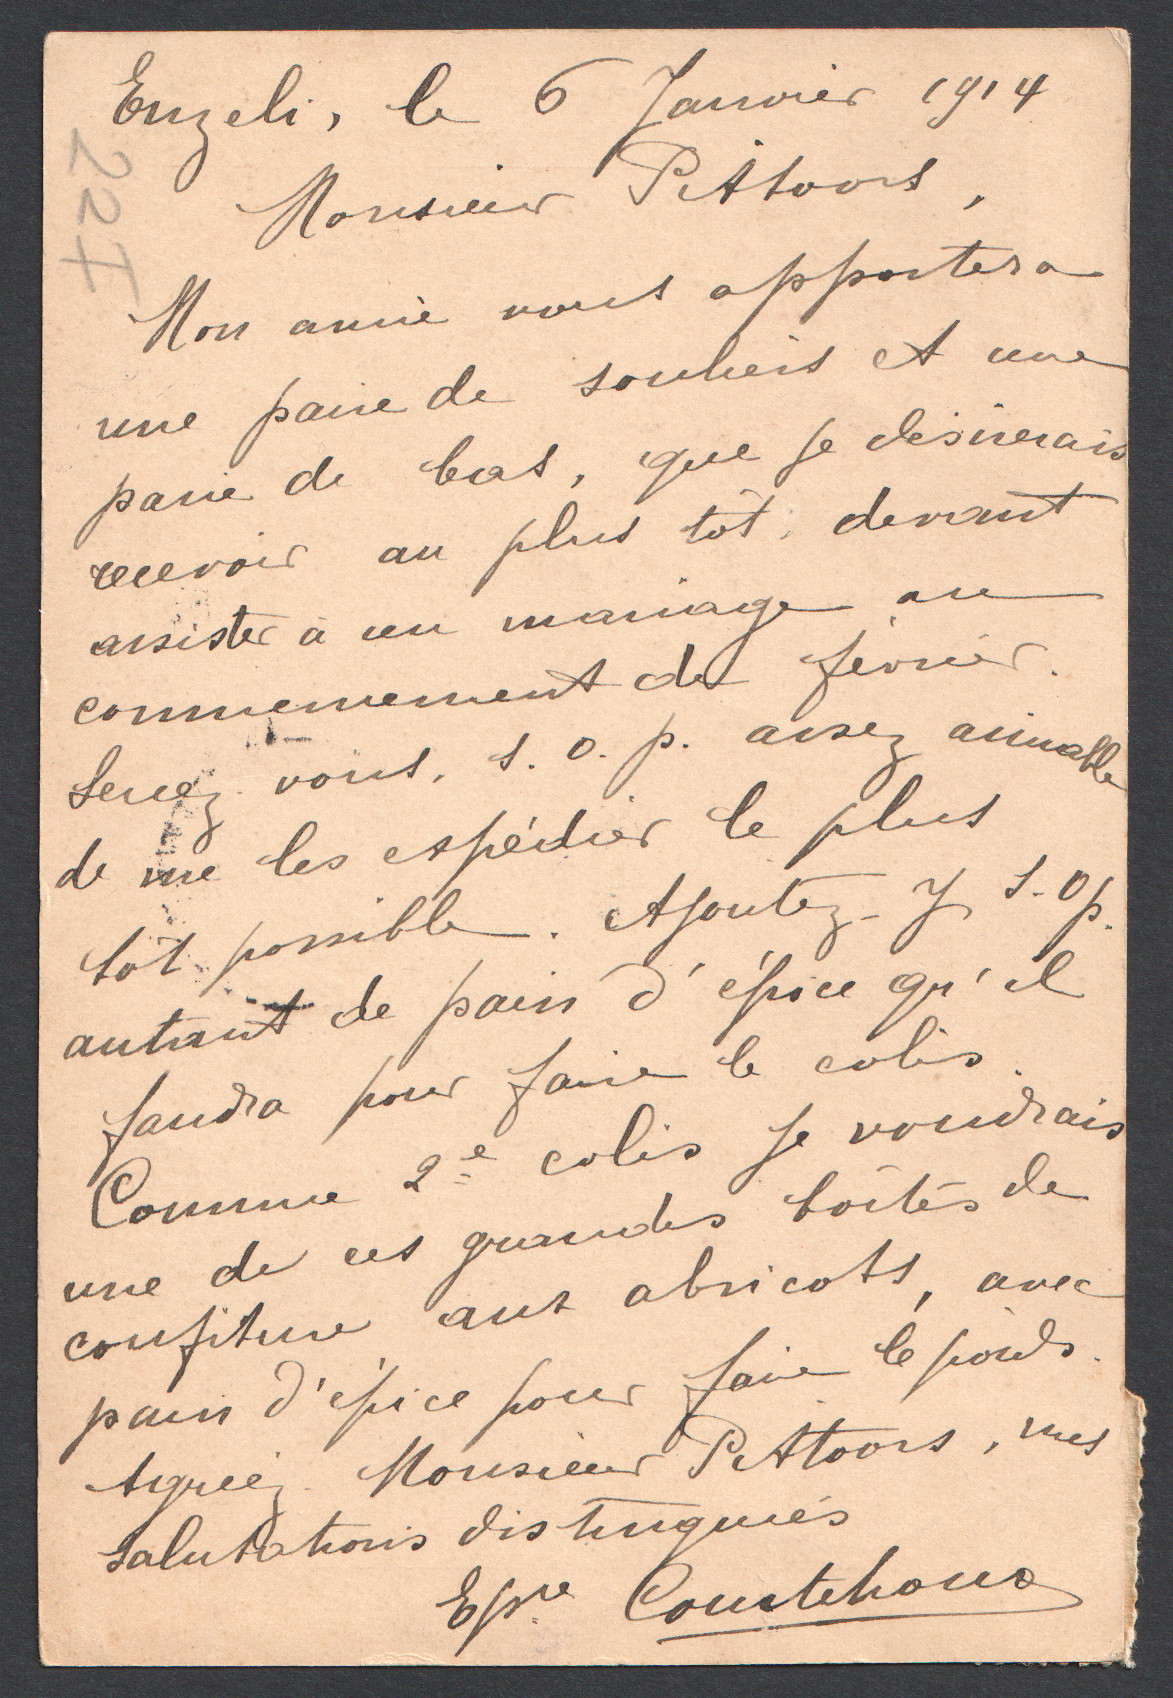 Enzeli, le 6 Janvier 1914
227
Monsieur Pittoors,
Mon amie vous apportera
une paire de souliers et une
paire de bas, que je désirerais
recevoir au plus tôt, devant
assister à un mariage au
commencement de février.
Serez vous, s. o. p. assez aimable
de me les expédier le plus
tôt possible. Ajoutez-y s.o.p.
autant de pain d'épice qu'il
faudra pour faire le colis.
Comme 2e colis je voudrais
une de ces grandes boîtes de
confiture aux abricots, avec
pain d'épice pour faire le poids.
Agréez Monsieur Pittoors, mes
salutations distinguées
Epse Constehoux